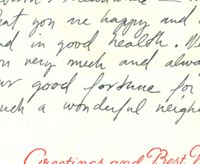 you are happy and
in good health.
very much and alway
good fortune for
such a wonderful neigh
Greetings and Best